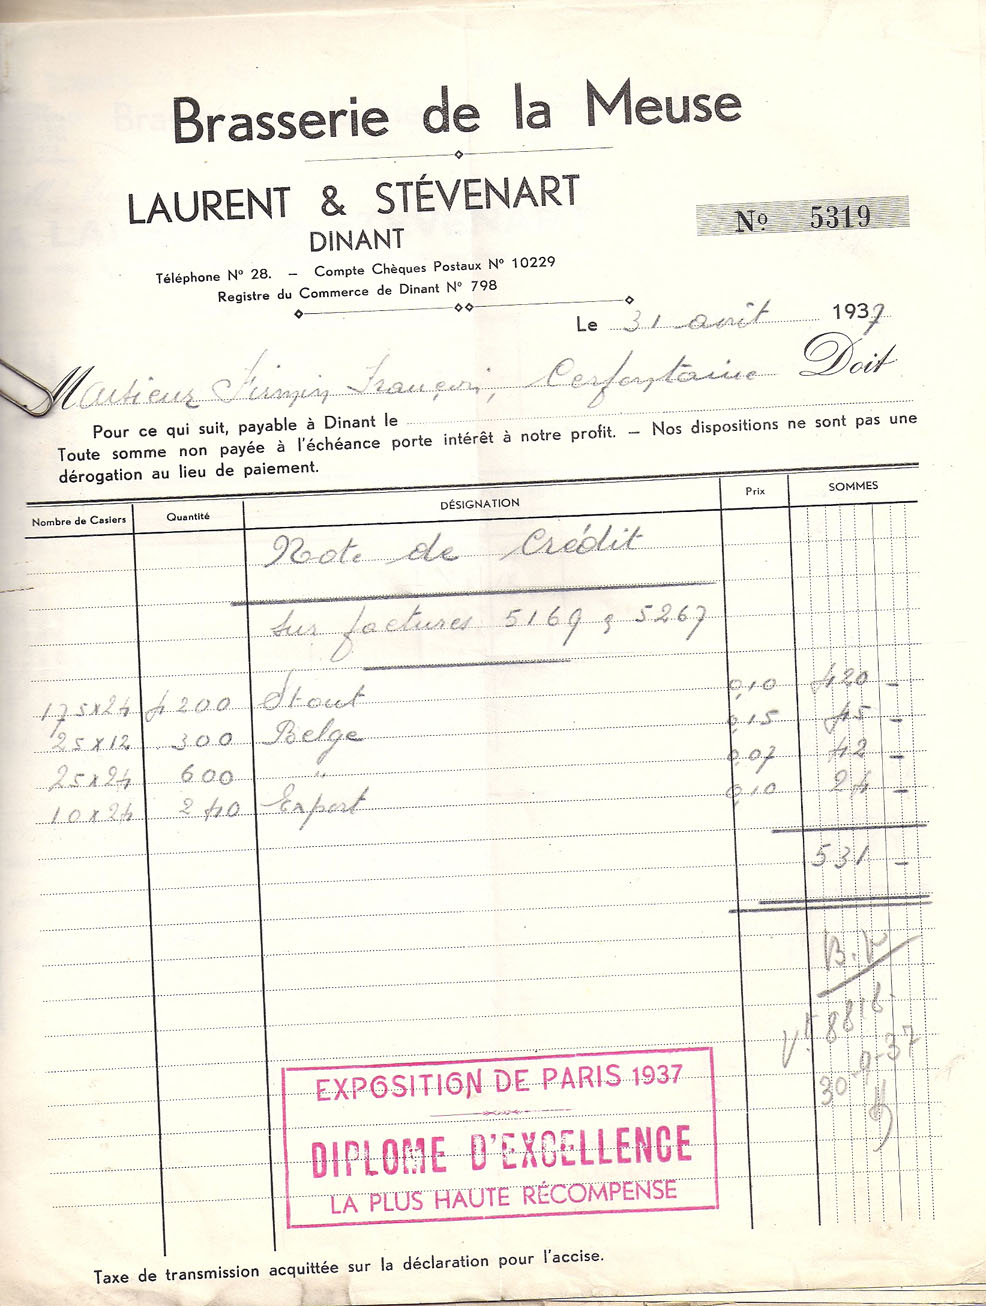 Brasserie de la Meuse
LAURENT & STÉVENART
DINANT
Nº 5319
Téléphone Nº 28. — Compte Chèques Postaux Nº 10229
Registre du Commerce de Dinant Nº 798
Le 31 août 1937
Monsieur Firmin François, Cerfontaine Doit
Pour ce qui suit, payable à Dinant le
Toute somme non payée à l'échéance porte intérêt à notre profit. — Nos dispositions ne sont pas une
dérogation au lieu de paiement.
Nombre de Casiers Quantité DÉSIGNATION Prix SOMMES
Note de Crédit
sur factures 5169 & 5267
175x24 4200 Stout 0,10 420 -
25x12 300 Belge 0,15 45 -
25x24 600 " 0,07 42 -
10x24 240 Export 0,10 24 -
531 -
B.V
8818
30-9-37
EXPOSITION DE PARIS 1937
DIPLOME D'EXCELLENCE
LA PLUS HAUTE RÉCOMPENSE
Taxe de transmission acquittée sur la déclaration pour l'accise.